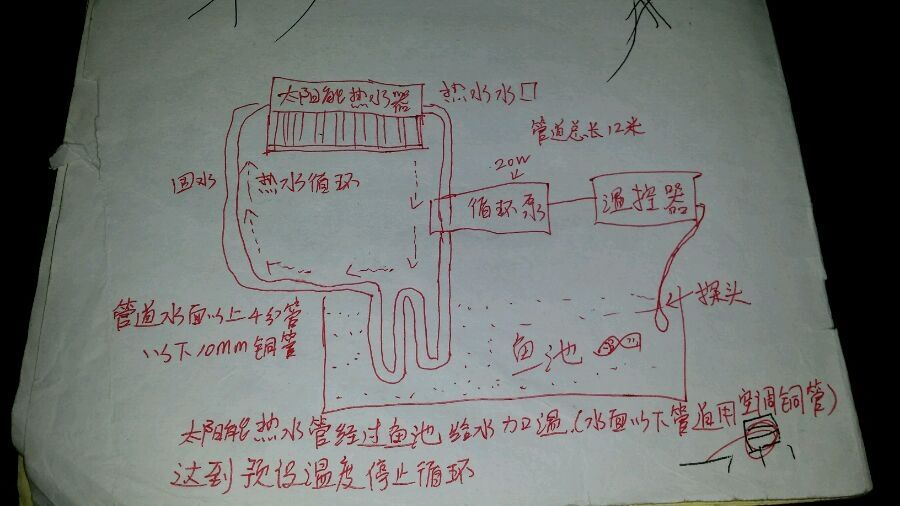 太阳能热水器
热水水口
管道总长12米
20W
回水
热水循环
循环泵
温控器
探头
管道水面以上4分管
以下10mm铜管
鱼池
太阳能热水管经过鱼池给水加温(水面以下管道用空调铜管)
达到预设温度停止循环